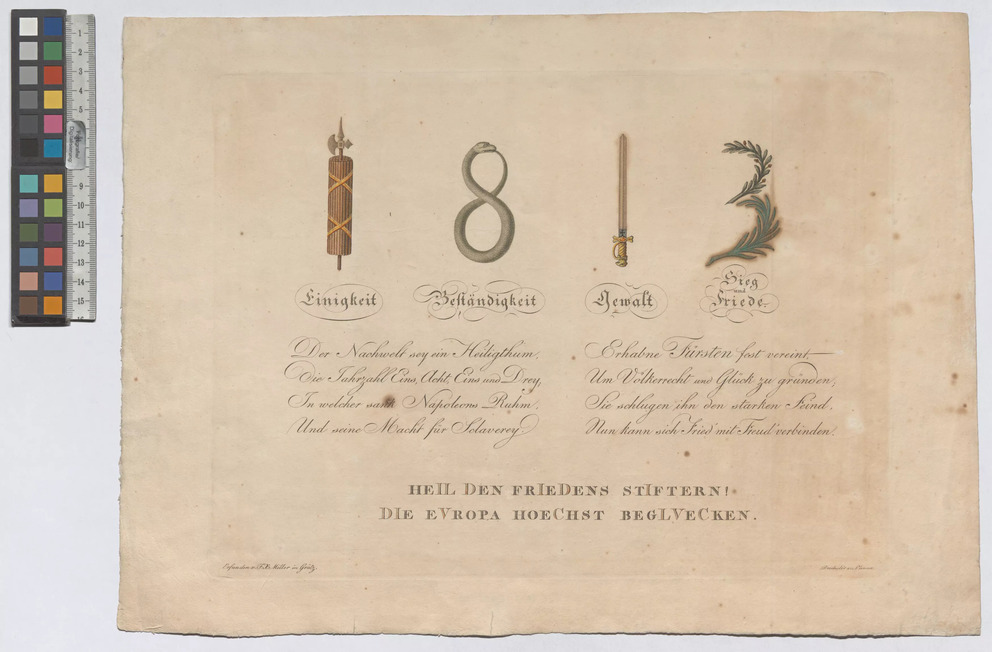 Einigkeit
Beständigkeit
Gewalt
Sieg
und
Friede
Der Nachwelt sey ein Heiligthum,
Die Jahrzahl Eins, Acht, Eins und Drey,
In welcher sank Napoleons Ruhm,
Und seine Macht für Sclaverey
Erhabne Fürsten fest vereint,
Um Völkerrecht und Glück zu gründen,
Sie schlugen ihn den starken Feind,
Nun kann sich Fried' mit Freud' verbinden.
HEIL DEN FRIEDENS STIFTERN!
DIE EVROPA HOECHST BEGLVECKEN.
Erfunden v. Miller in Grätz.
1
2
3
4
5
9
10
11
12
13
14
15